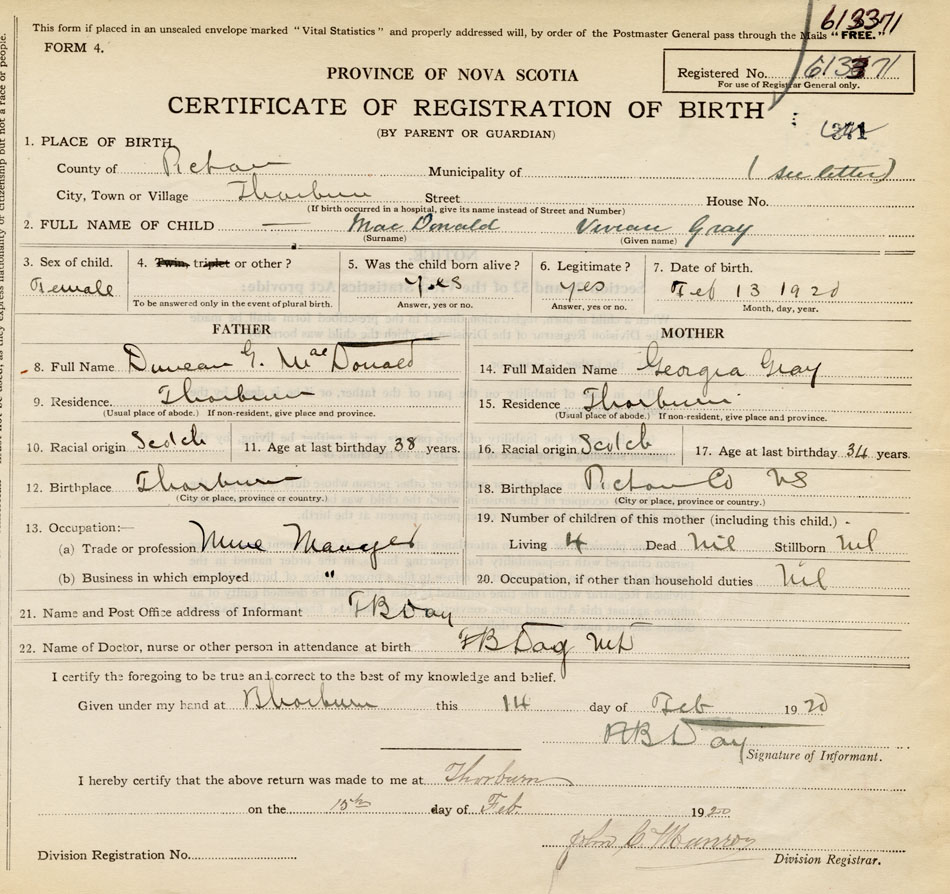 613371
This form if placed in an unsealed envelope marked "Vital Statistics" and properly addressed will, by order of the Postmaster General pass through the Mails "FREE."
FORM 4.
Registered No. 613371
For use of Registrar General only.
PROVINCE OF NOVA SCOTIA
CERTIFICATE OF REGISTRATION OF BIRTH
(BY PARENT OR GUARDIAN)
1. PLACE OF BIRTH
County of Pictou Municipality of (see letter)
City, Town or Village Thorburn Street House No.
(If birth occurred in a hospital, give its name instead of Street and Number)
2. FULL NAME OF CHILD — Mac Donald Vivian Gray
(Surname) (Given name)
3. Sex of child. Female
4. Twin, triplet or other?
To be answered only in the event of plural birth.
5. Was the child born alive? Yes
Answer, yes or no.
6. Legitimate? Yes
Answer, yes or no.
7. Date of birth. Feb 13 1920
Month, day, year.
FATHER
8. Full Name Duncan G. MacDonald
9. Residence. Thorburn
(Usual place of abode.) If non-resident, give place and province.
10. Racial origin Scotch 11. Age at last birthday 38 years.
12. Birthplace Thorburn
(City or place, province or country.)
13. Occupation:—
(a) Trade or profession Mine Manager
(b) Business in which employed "
MOTHER
14. Full Maiden Name Georgia Gray
15. Residence Thorburn
(Usual place of abode.) If non-resident, give place and province.
16. Racial origin Scotch 17. Age at last birthday 34 years.
18. Birthplace Pictou Co NS
(City or place, province or country.)
19. Number of children of this mother (including this child.)
Living 4 Dead Nil Stillborn Nil
20. Occupation, if other than household duties Nil
21. Name and Post Office address of Informant FB Day
22. Name of Doctor, nurse or other person in attendance at birth FB Day MD
I certify the foregoing to be true and correct to the best of my knowledge and belief.
Given under my hand at Thorburn this 14 day of Feb 1920
FB Day
Signature of Informant.
I hereby certify that the above return was made to me at Thorburn
on the 15th day of Feb 1920
John C Munroe
Division Registration No. Division Registrar.